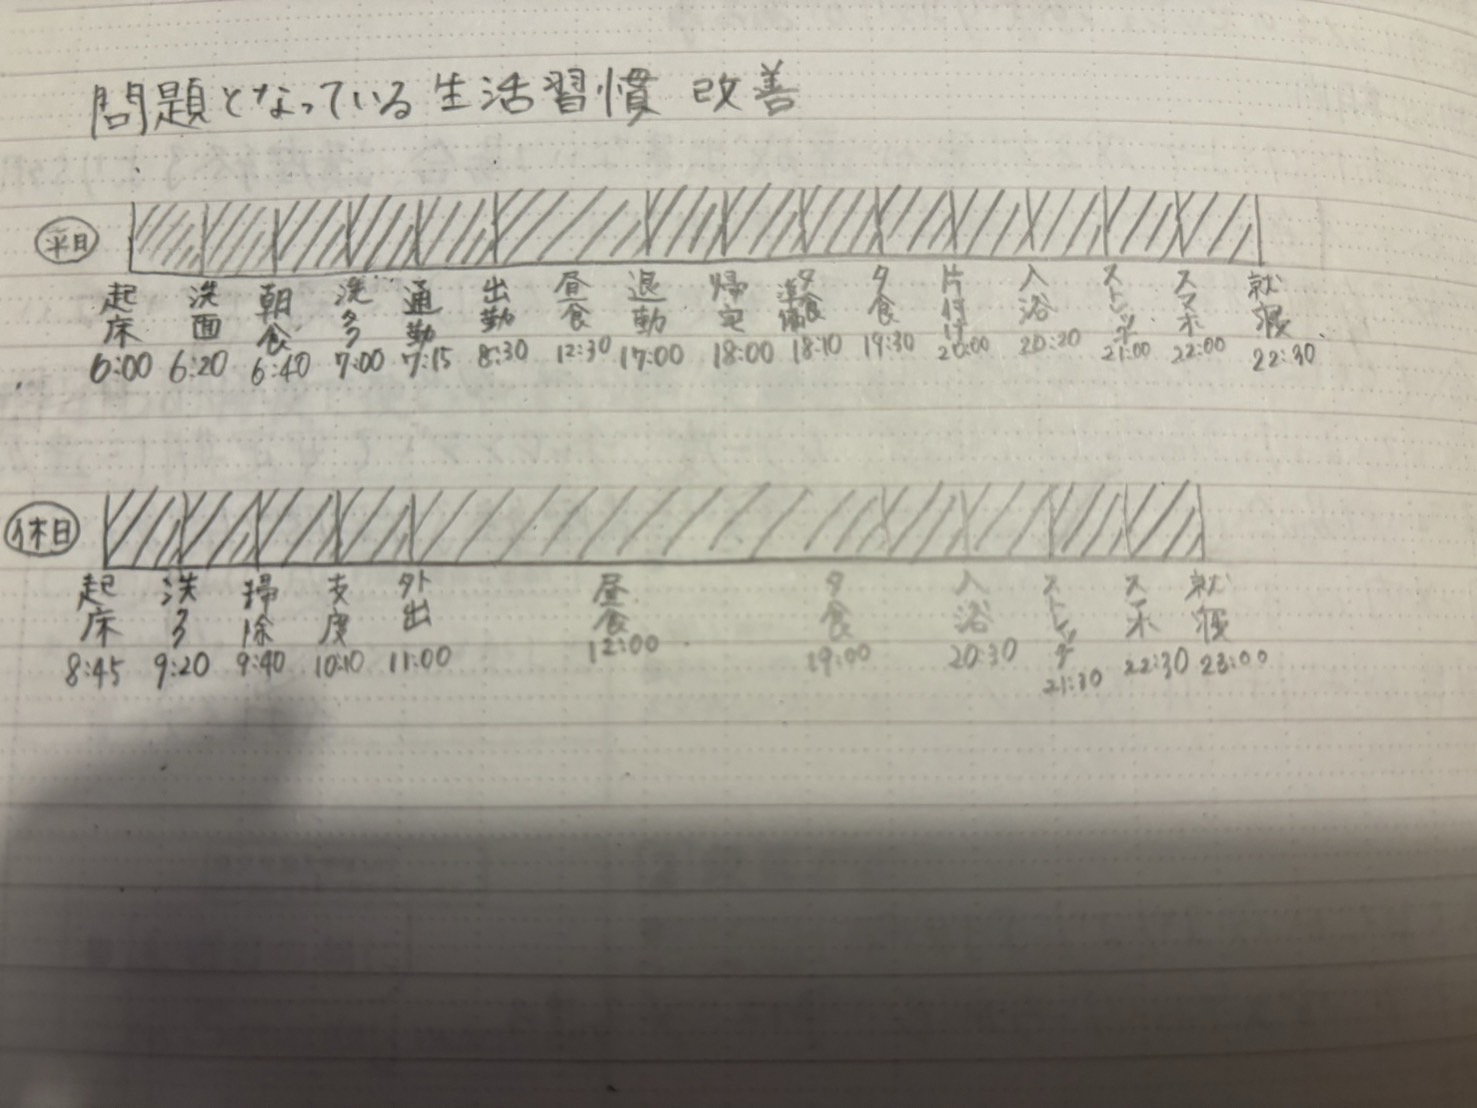 問題となっている生活習慣 改善
平日
起床 洗面 朝食 洗タク 通勤 出勤 昼食 退勤 帰宅 夕食準備 夕食 片付け 入浴 ストレッチ スマホ 就寝
6:00 6:20 6:40 7:00 7:15 8:30 12:30 17:00 18:00 18:10 19:30 20:00 20:20 21:00 22:00 22:30
休日
起床 洗タク 掃除 支度 外出 昼食 夕食 入浴 ストレッチ スマホ 就寝
8:45 9:20 9:40 10:10 11:00 12:00 19:00 20:30 21:30 22:30 23:00